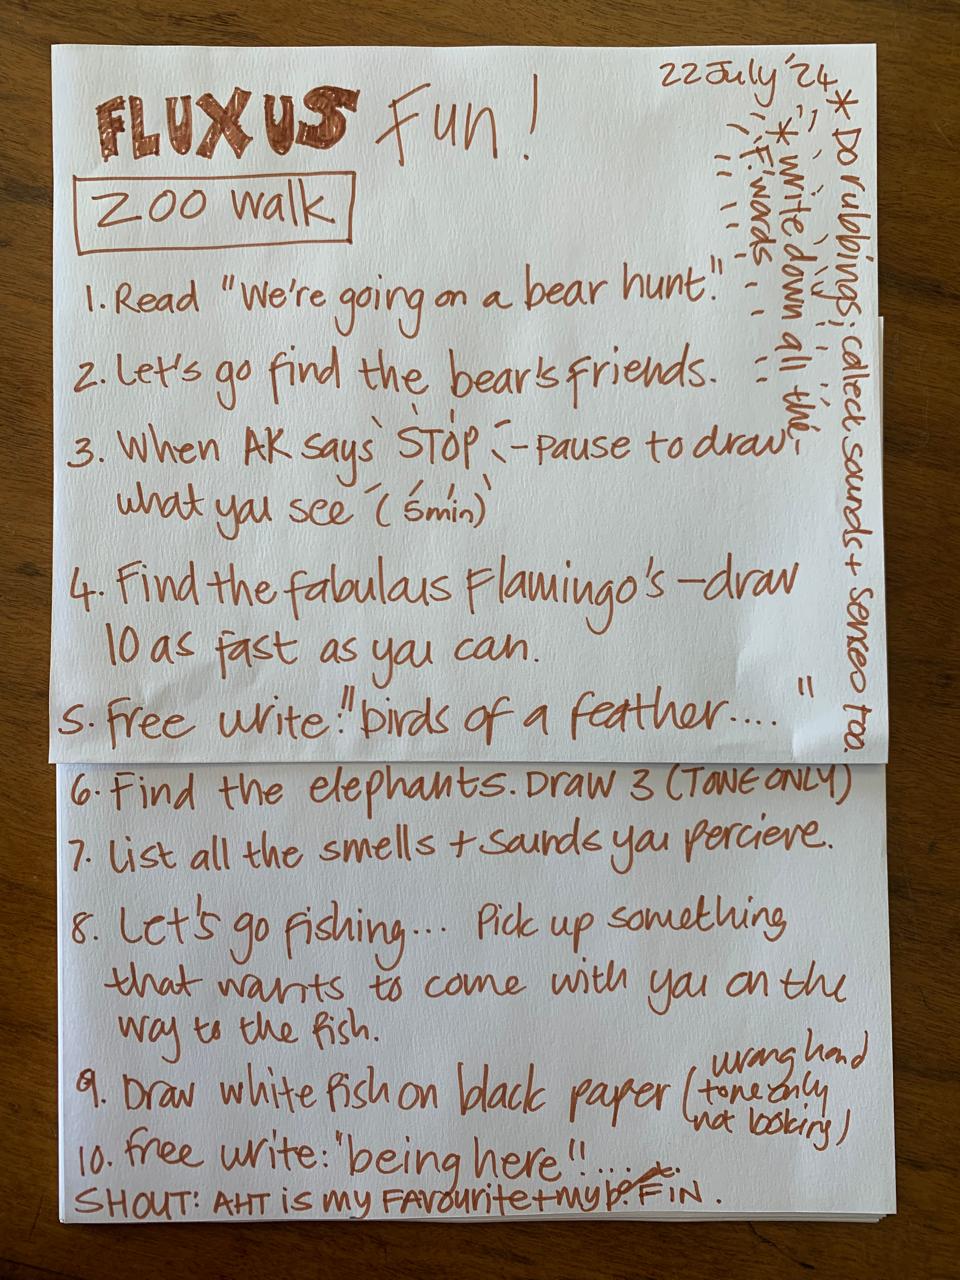 22 July '24
FLUXUS Fun!
ZOO walk
1. Read "We're going on a bear hunt."
2. Let's go find the bear's friends.
3. When AK says STOP - Pause to draw
what you see (5min)
4. Find the fabulous Flamingo's - draw
10 as fast as you can.
5. Free write: "birds of a feather.... "
6. Find the elephants. Draw 3 (TONE ONLY)
7. List all the smells + sounds you percieve.
8. Let's go fishing... Pick up something
that wants to come with you on the
way to the fish.
9. Draw white fish on black paper (wrong hand
tone only
not looking)
10. Free write: "being here"!...
SHOUT: AHT is my FAVOURITE + my FIN.
* Do rubbings; collect sounds + senses too
* write down all the
'F' words